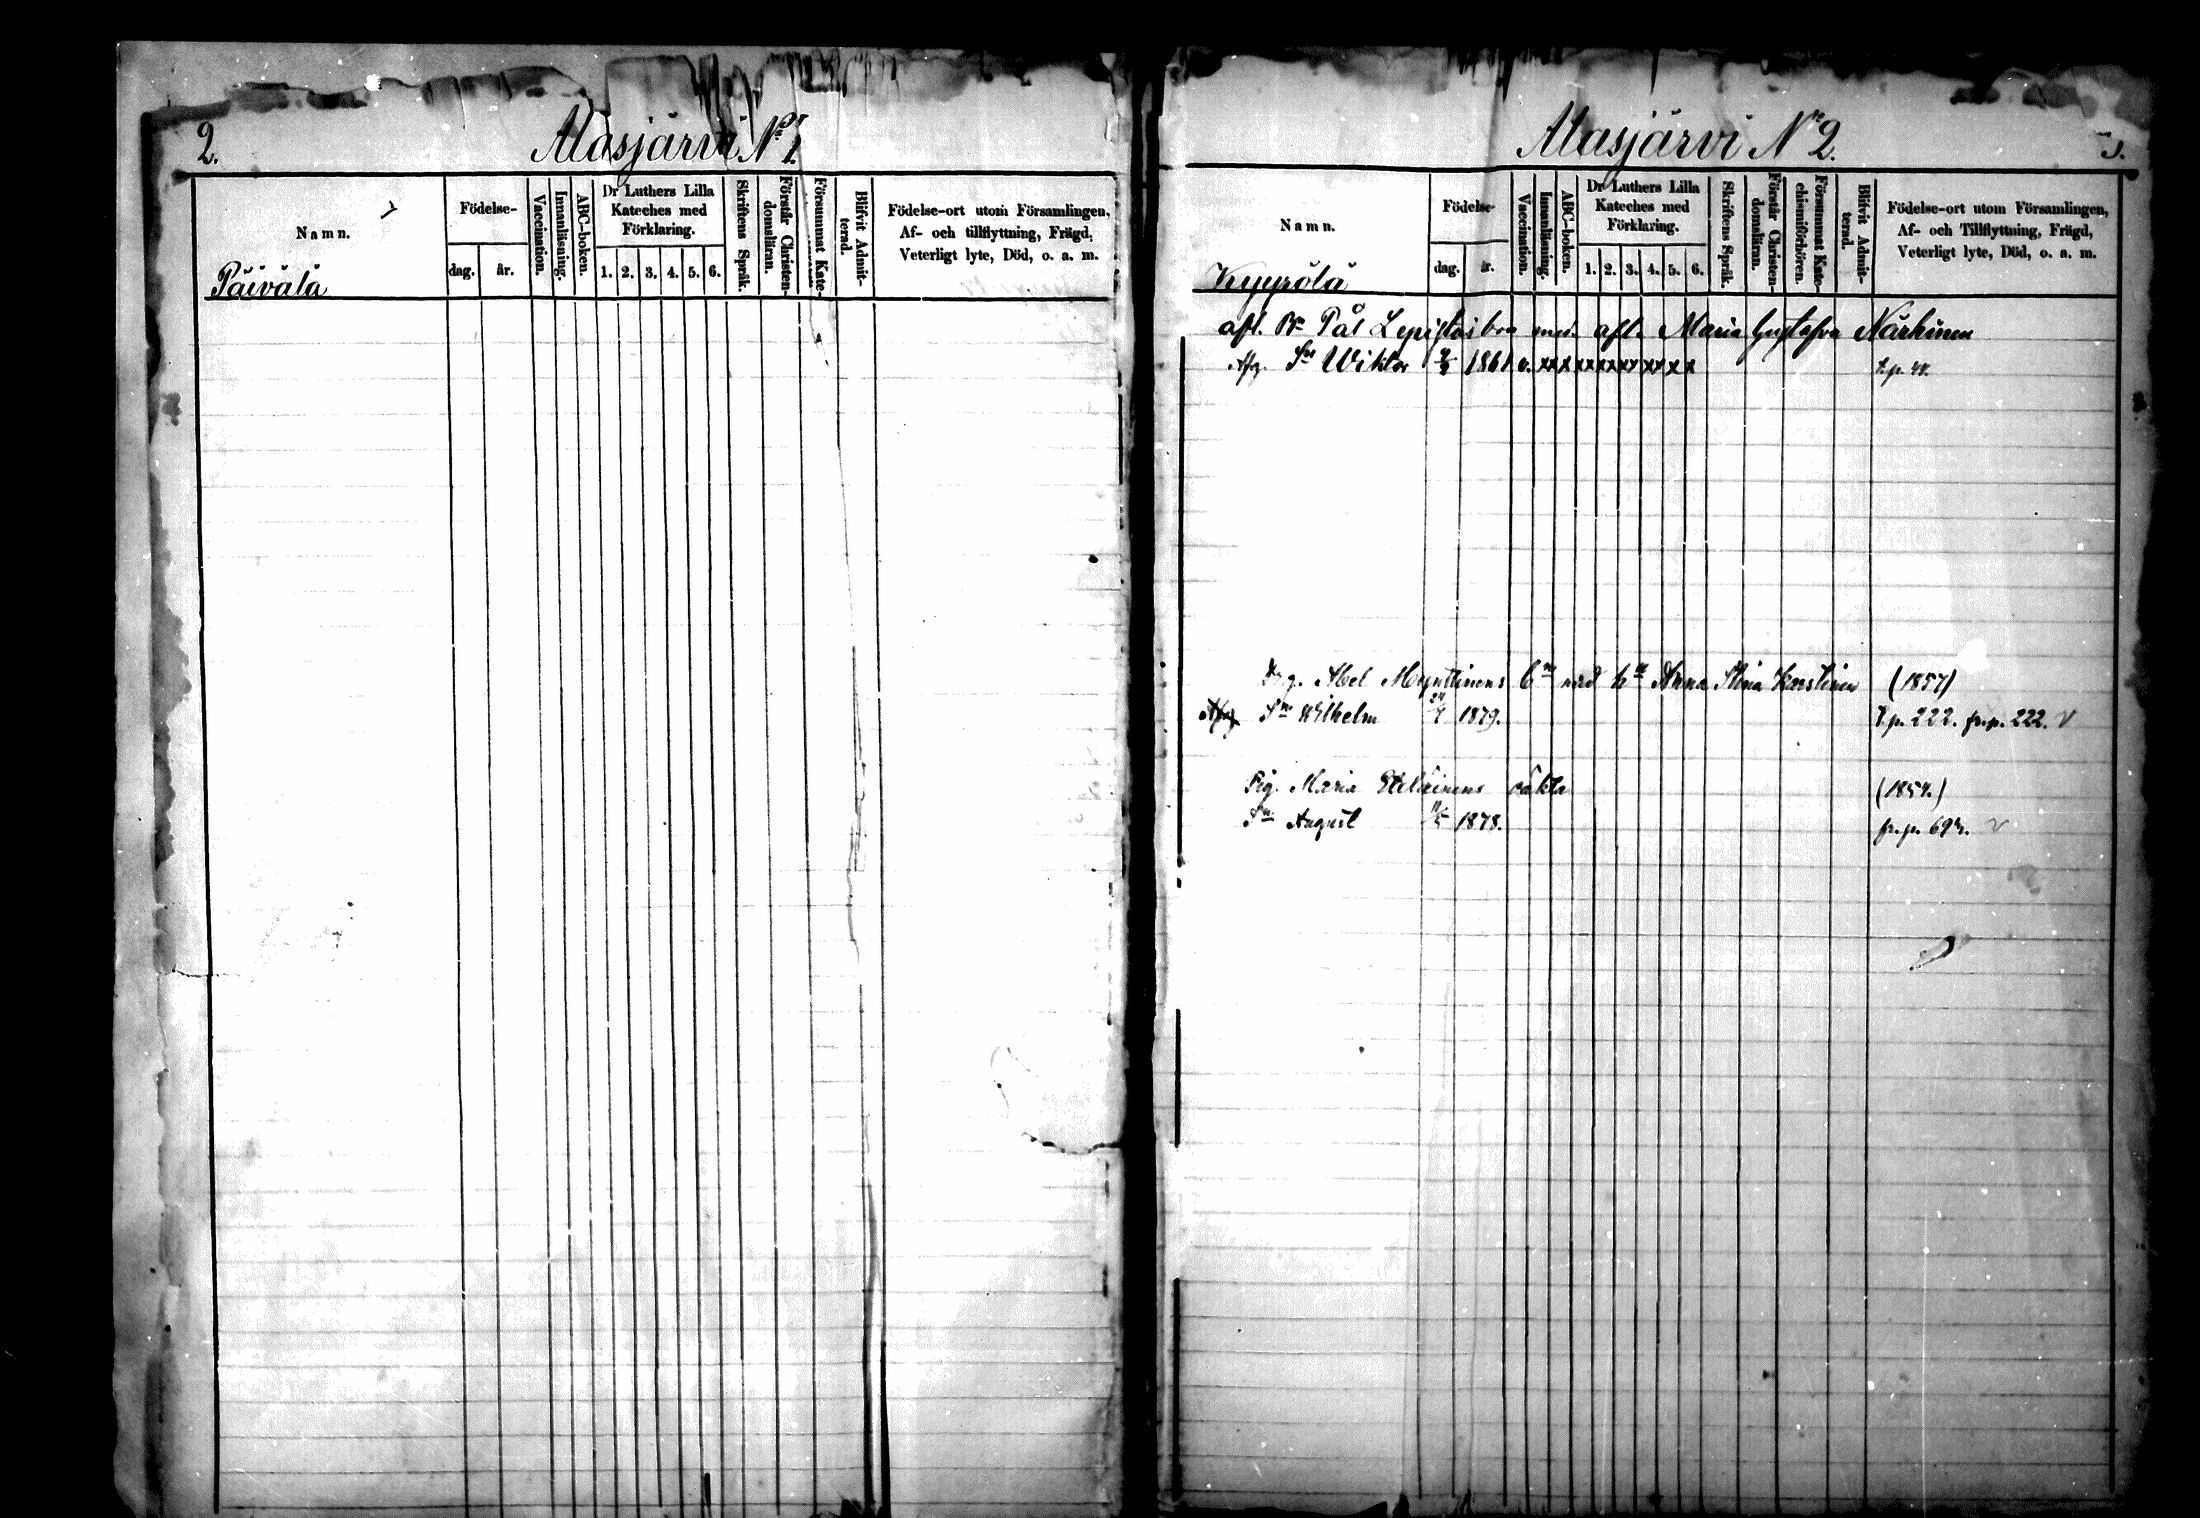 2.
Alasjärvi No 1.
Namn.
Födelse-
dag.
år.
Vaccination.
Innanläsning.
ABC-boken.
Dr Luthers Lilla
Kateches med
Förklaring.
1. 2. 3. 4. 5. 6.
Skriftens Språk.
Förstår Christen-
domsläran.
Försummat Kate-
Blifvit Admit-
terad.
Födelse-ort utom Församlingen,
Af- och tillflyttning, Frägd,
Veterligt lyte, Död, o. a. m.
Päivälä
Alasjärvi No 2.
3.
Namn.
Födelse-
dag.
år.
Vaccination.
Innanläsning.
ABC-boken.
Dr Luthers Lilla
Kateches med
Förklaring.
1. 2. 3. 4. 5. 6.
Skriftens Språk.
Förstår Christen-
domsläran.
Försummat Kate-
chismiförhören.
Blifvit Admit-
terad.
Födelse-ort utom Församlingen,
Af- och Tillflyttning, Frägd,
Veterligt lyte, Död, o. a. m.
Kyyrölä
afl. Pål Lepistös med afl. Maria Gustafva Närhinen
Sn Wiktor 1861 v. x x x x x x x x x
Abel Mynttinens med Anna Stina (1857)
Sn Wilhelm 1879. T.p. 222. fr.p. 222. v
Pig. Maria Eteläinens oäkta (1854.)
Sn August 1878. fr.p. 694. v